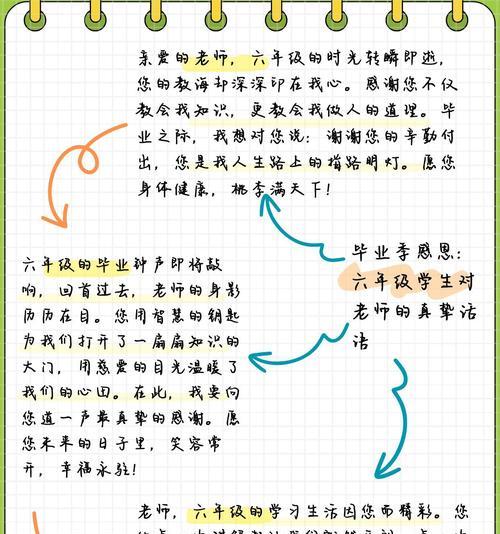 亲爱的老师，六年级的时光转瞬即逝，
您的教海却深深印在我心。感谢您不仅
教会我知识，更教会我做人的道理。毕
业之际，我想对您说：谢谢您的辛勤付
出，您是我人生路上的指路明灯。愿您
身体健康，桃李满天下！
毕业季感恩：
六年级学生对
老师的真挚话
语
六年级的毕业钟声即将敲
响，回首过去，老师的身影
历历在目。您用智慧的钥匙
为我们打开了一扇扇知识的
大门，用慈爱的目光温暖了
我们的心田。在此，我要向
您道一声最真挚的感谢。愿
您未来的日子里，笑容常
开，幸福永驻！
老师，六年级的学习生活因您而精彩。您